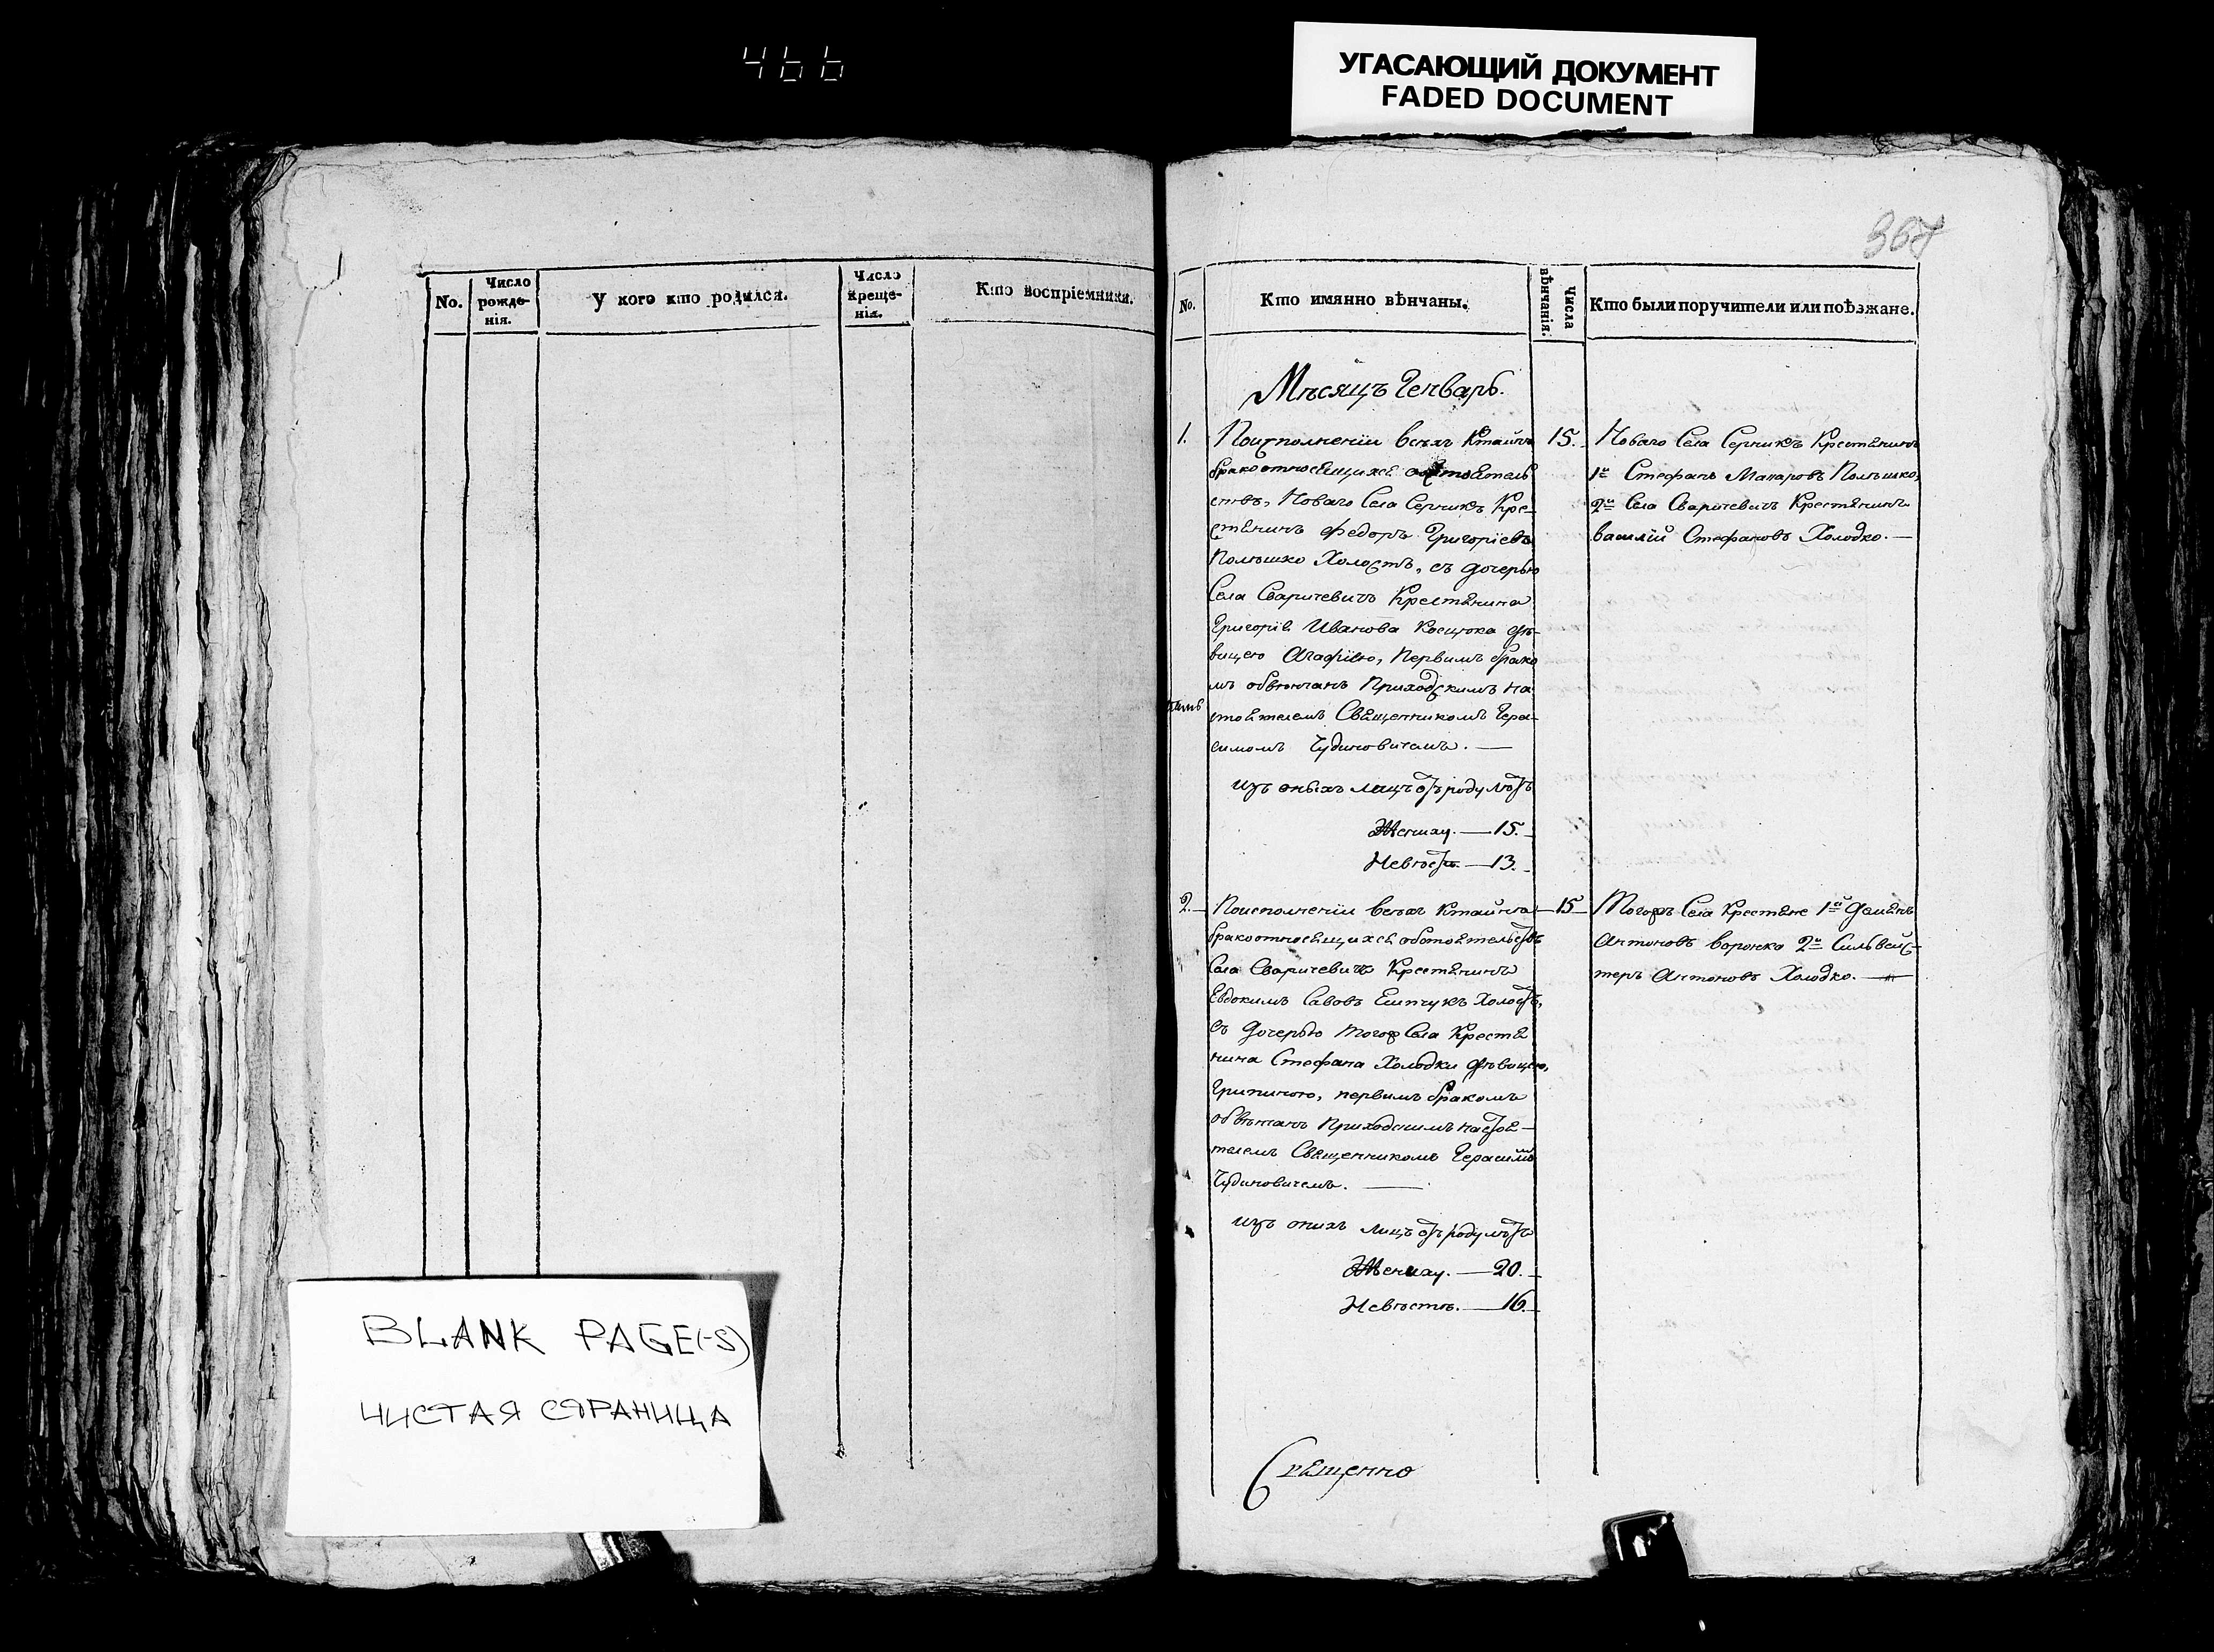 466
УГАСАЮЩИЙ ДОКУМЕНТ
FADED DOCUMENT
No.
Число рожденія.
У кого кто родился.
Число крещенія.
Кто воспріемники.
BLANK PAGE(-S)
ЧИСТАЯ СТРАНИЦА
367
No.
Кто имянно вѣнчаны.
Числа вѣнчанія.
Кто были поручители или поѣзжане.
Мѣсяцъ Генварь.
1.
По исполненіи всѣхъ к тайнѣ
брако относящихся обстоятель
ствъ, Новаго Села Серникъ Кре-
стянинъ Федоръ Григоріевъ
Полюшко Холостъ, съ дочерью
Села Сваричевичъ Крестянина
Григорія Иванова Косцюка дѣ-
вицею Агафіею, первымъ брако
мъ обвѣнчанъ Приходскимъ на
стоятелемъ Священникомъ Гера-
симомъ Чудиновичемъ. —
изъ оныхъ лицъ отъ роду лѣтъ
Жениху. — 15.
Невѣстѣ — 13.
15.
Новаго Села Серникъ Крестянинъ
1й Стефанъ Макаровъ Полюшко,
2й Села Сваричевичъ Крестянинъ
Василій Стефановъ Холодко. —
2.
По исполненіи всѣхъ к тайнѣ
брако относящихся обстоятельствъ
Села Сваричевичъ Крестянинъ
Евдокимъ Савовъ Холостъ,
съ дочерью тогож Села Крестя
нина Стефана Холодки дѣвицею,
Грипиною, первымъ бракомъ
обвѣнчанъ Приходскимъ настоя-
телемъ Священникомъ Герасимомъ
Чудиновичемъ. —
изъ онихъ лицъ отъ роду лѣтъ
Жениху. — 20.
Невѣстѣ. — 16.
15
Тогожъ Села Крестяне 1й Демянъ
Антоновъ Воронко 2й Сильвес-
теръ Антоновъ Холодко. —
Священно